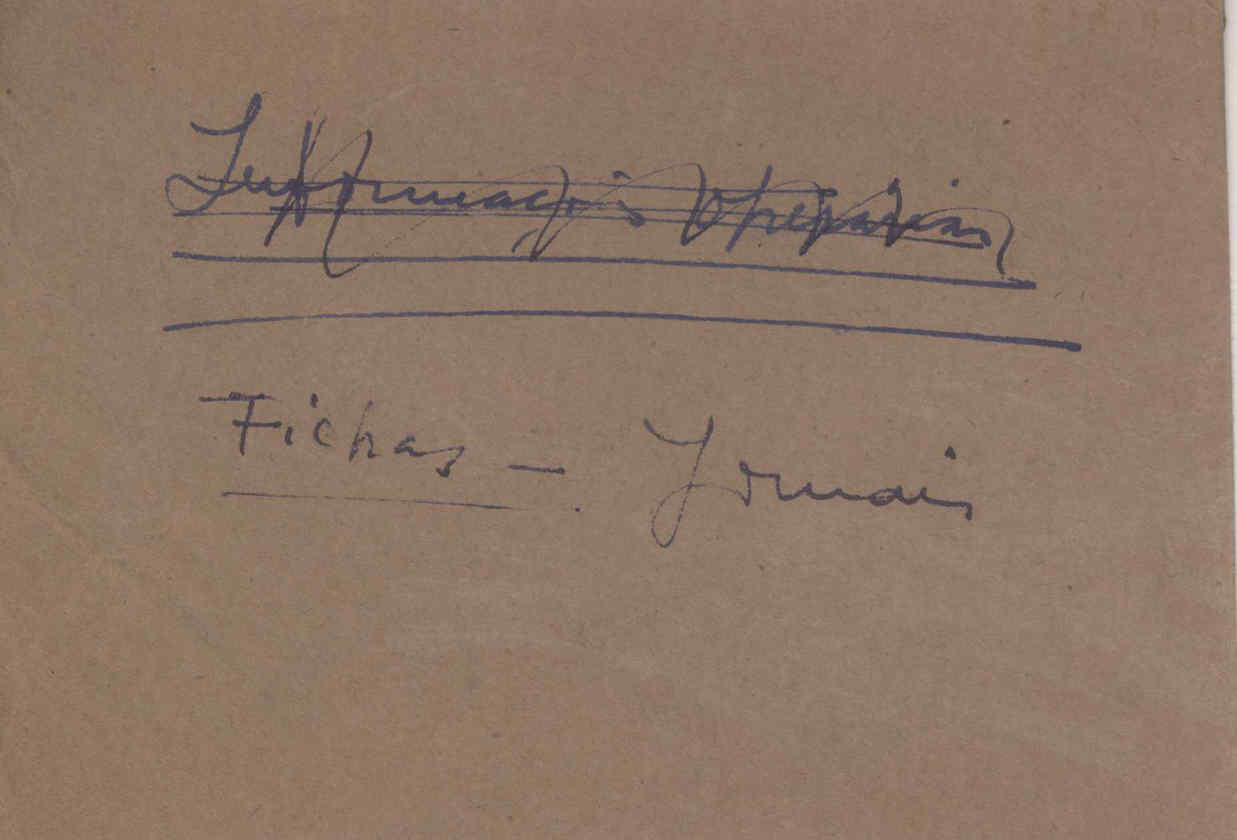 Informações Operárias
Fichas — Jornais